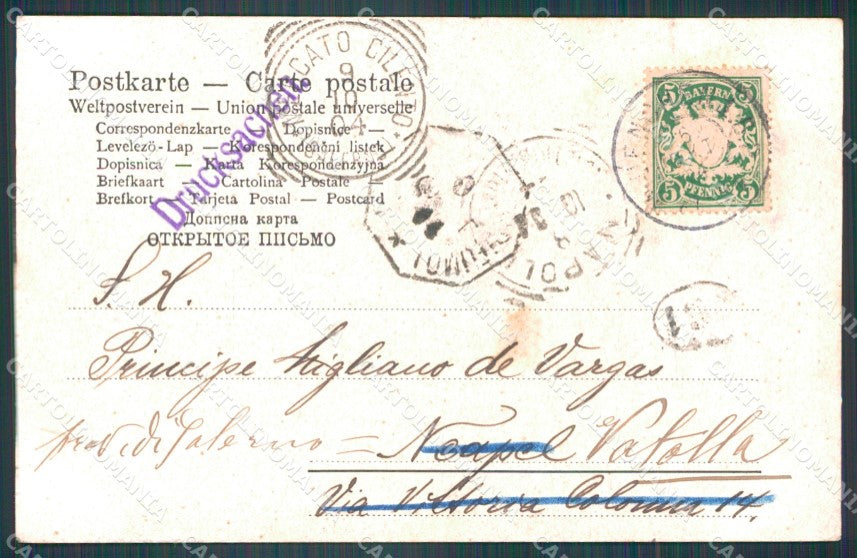 Postkarte — Carte postale
Weltpostverein — Union postale universelle
Correspondenzkarte — Dopisnice —
Levelezö-Lap — Korespondenční listek
Dopisnica — Karta Korespondenzyjna
Briefkaart — Cartolina Postale —
Brefkort — Tarjeta Postal — Postcard
Дописна карта
ОТКРЫТОЕ ПИСЬМО
Drucksachen
CATO CILENTO
9
10
04
NAPOLI
BAYERN
5 5
5 PFENNIG 5
1
S. H.
Principe Migliano de Vargas
prov. di Salerno = Neapel Vatolla
Via Vittoria Colonna 14.
CARTOLINOMANIA